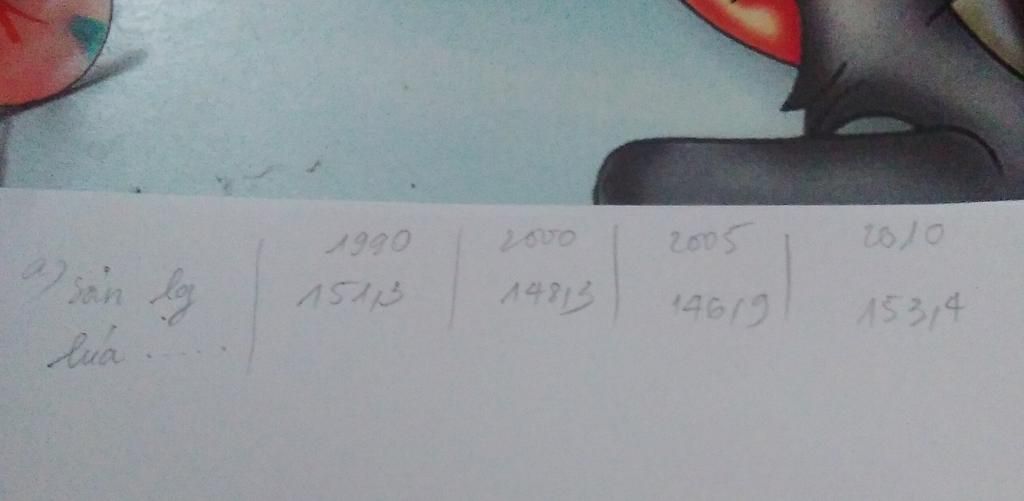 1990 2000 2005 2010
a) sản lg 151,3 148,3 146,9 153,4
lúa .....